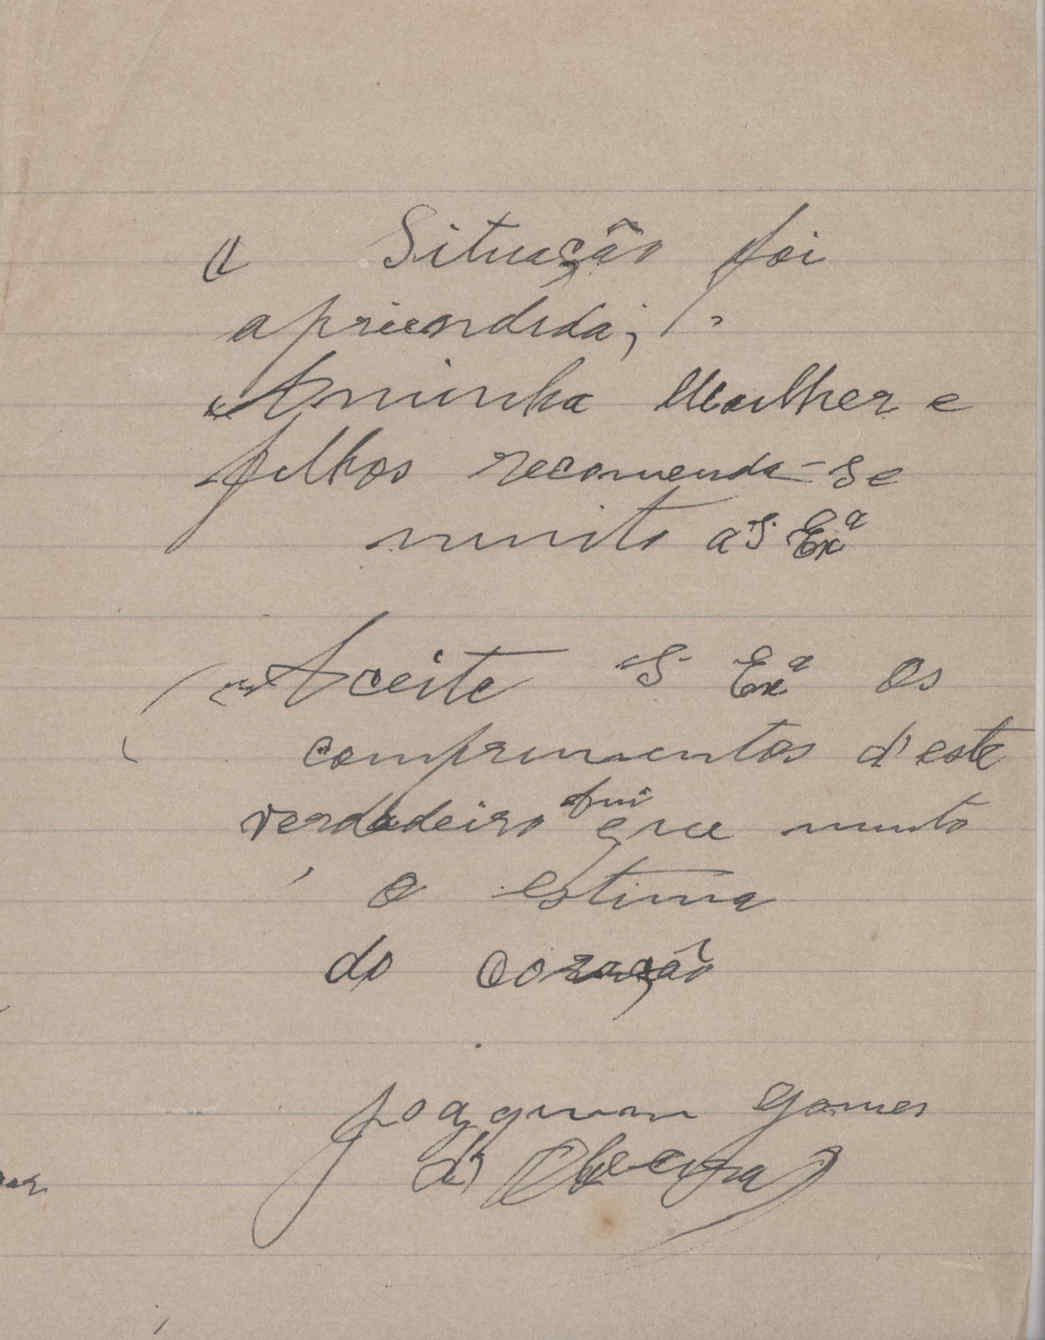 A Situação foi
apriendida;
A minha Mulher e
filhos recomenda-se
muito a S. Exª
Aceite S. Exª os
comprimentos d'este
verdadeiro que muito
o estima
do coração
Joaquim Gomes
d'Oliveira